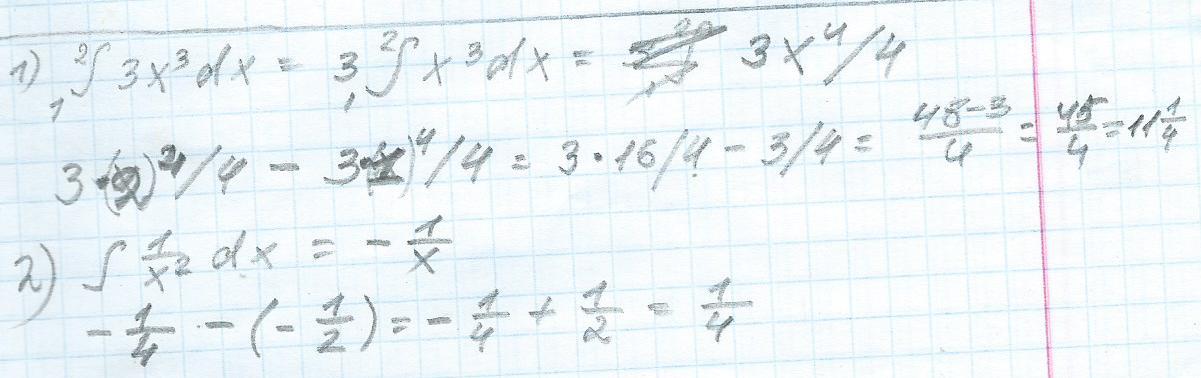 1) ₁²∫ 3x³dx = 3 ₁²∫ x³dx = 3x⁴/4
3·(2)⁴/4 - 3·(1)⁴/4 = 3·16/4 - 3/4 = (48-3)/4 = 45/4 = 11 1/4
2) ∫ 1/x² dx = - 1/x
- 1/4 - (- 1/2) = - 1/4 + 1/2 = 1/4